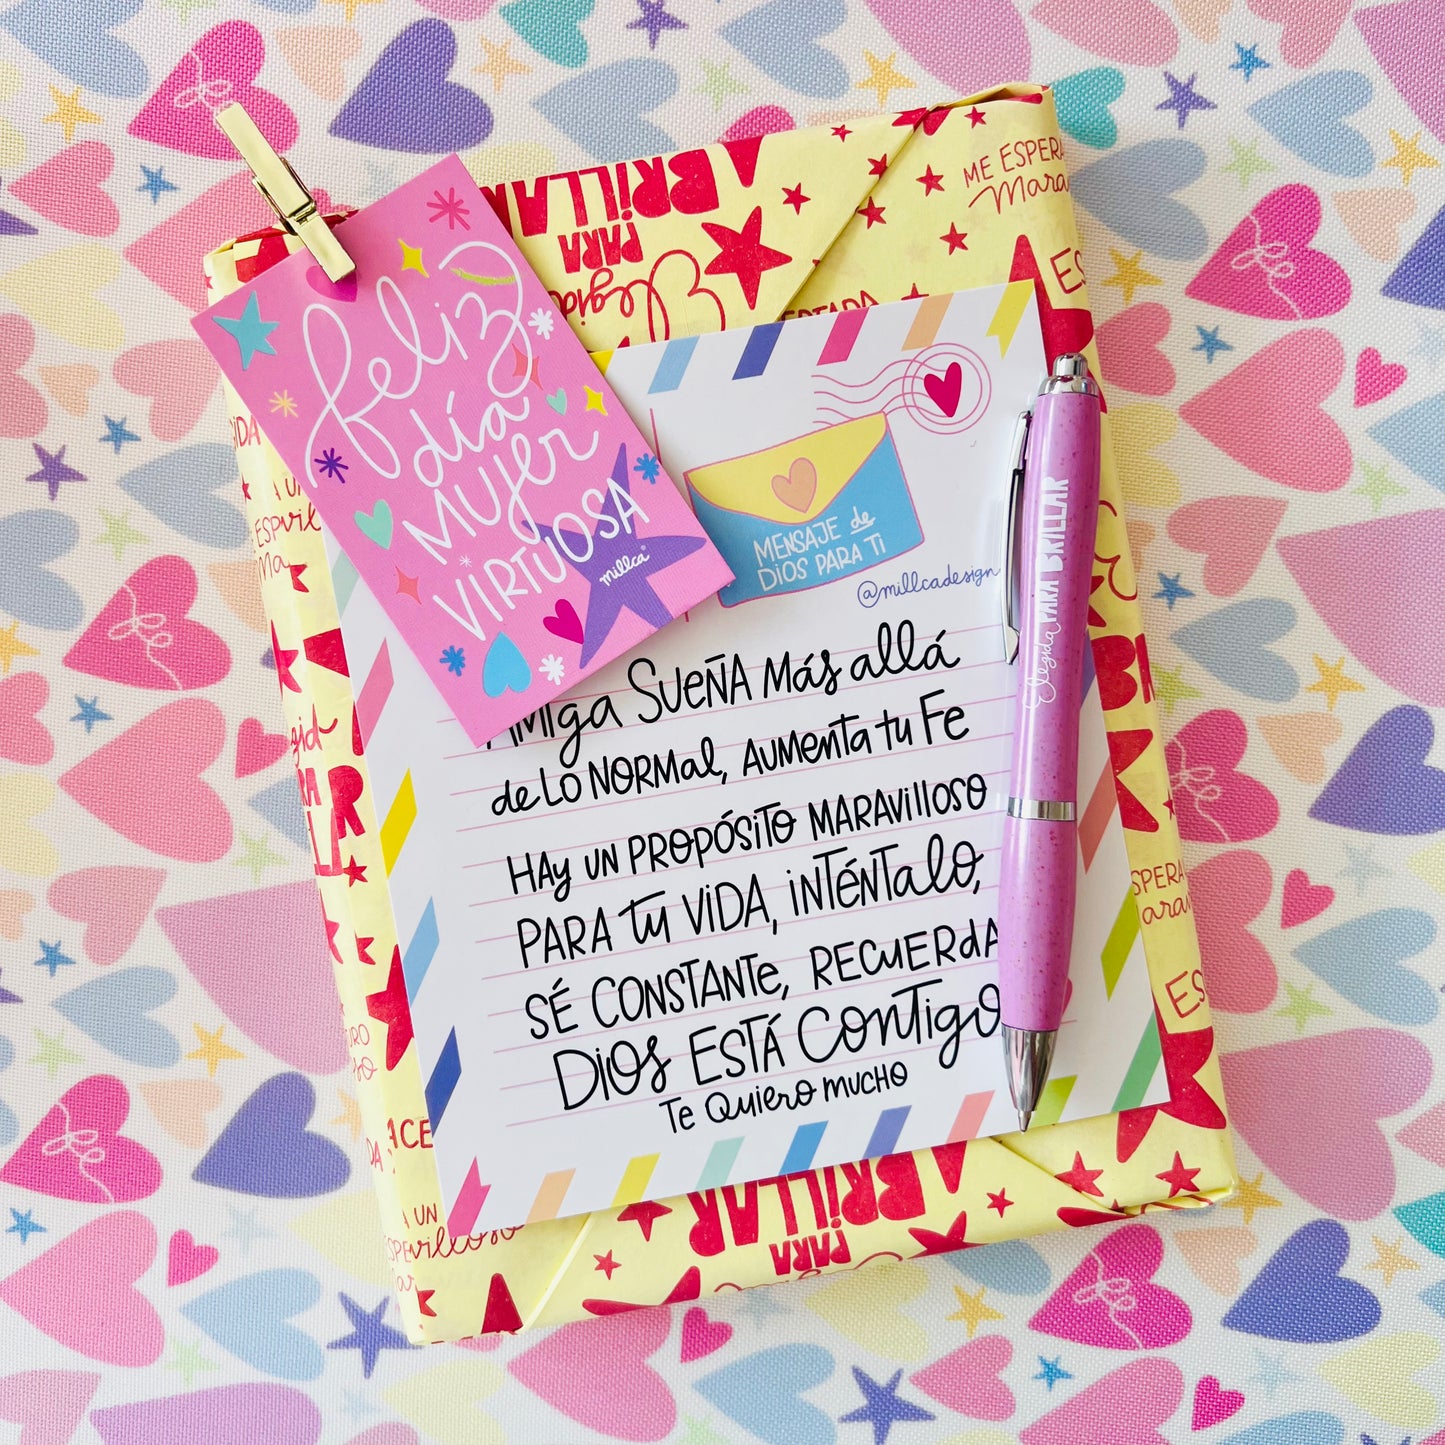 feliz
día
mujer
VIRTUOSA
millca
MENSAJE de
DIOS PARA TI
@millcadesign
AMIGA SUEÑA MÁS allá
de LO NORMAL, AUMENTA tu Fe
HAY UN PROPÓSITO MARAVILLOSO
PARA TU VIDA, INTÉNTALO,
SÉ CONSTANTE, RECUERDA
DIOS ESTÁ CONTIGO
Te QUIERO MUCHO
Elegida PARA BRILLAR
ME ESPERA
Mara
Elegid
PARA
BRILLAR
BRILLAR
PARA
fe
fe
fe
fe
fe
fe